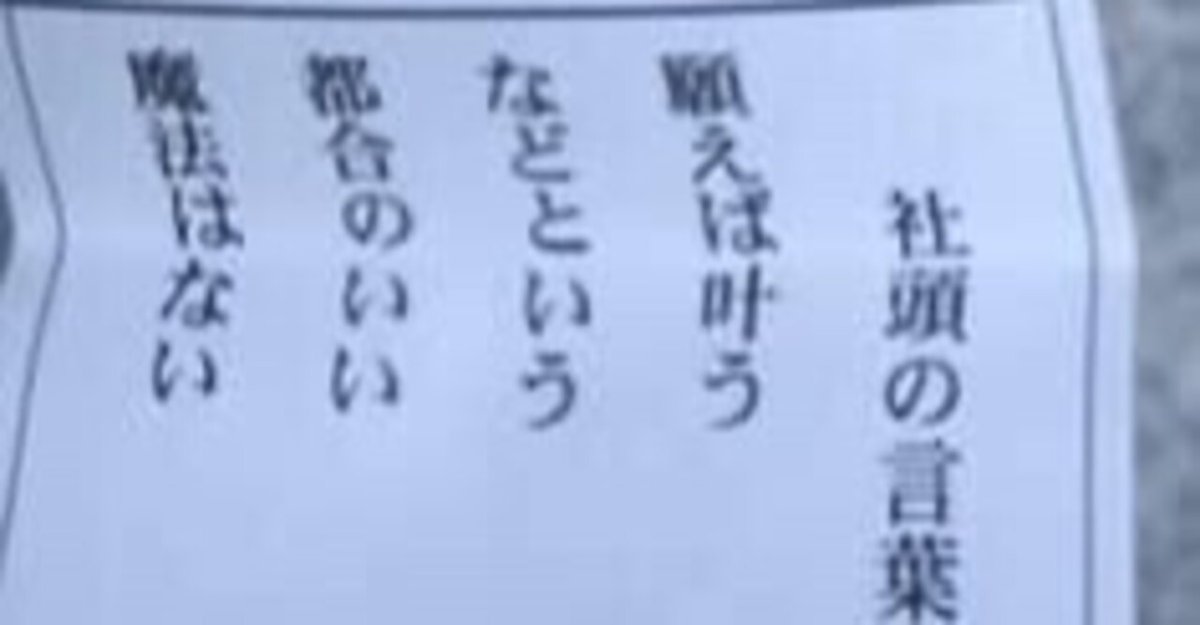 社頭の言葉
願えば叶う
などという
都合のいい
魔法はない